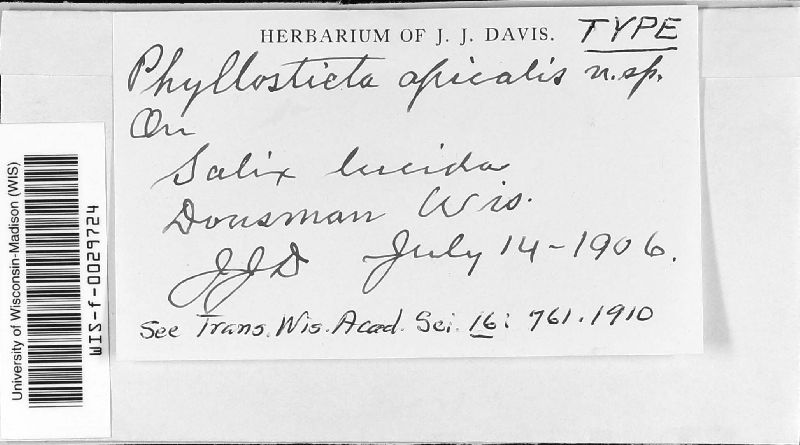 HERBARIUM OF J. J. DAVIS. TYPE
Phyllosticta apicalis n.sp.
On
Salix lucida
Dousman Wis.
JJD July 14-1906.
See Trans. Wis. Acad. Sci. 16: 761. 1910
University of Wisconsin-Madison (WIS)
WIS-f-0029724